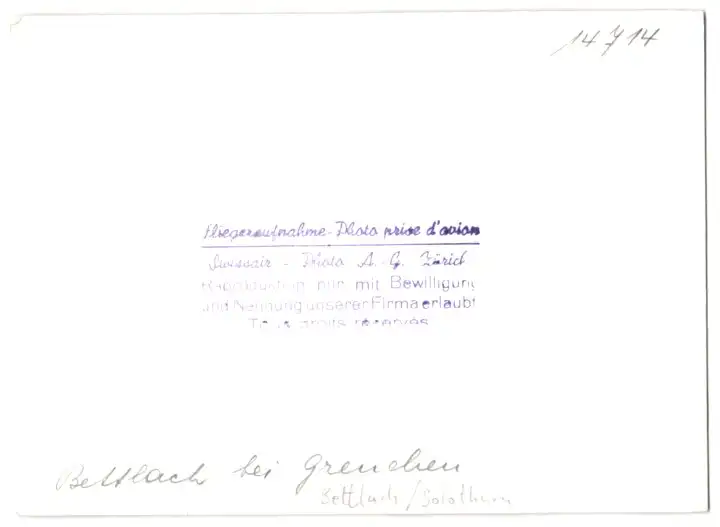 14714
Fliegeraufnahme - Photo prise d'avion
Swissair - Photo A.-G. Zürich
Reproduktion nur mit Bewilligung
und Nennung unserer Firma erlaubt
Tous droits réservés
Bettlach bei Grenchen
Bettlach / Solothurn